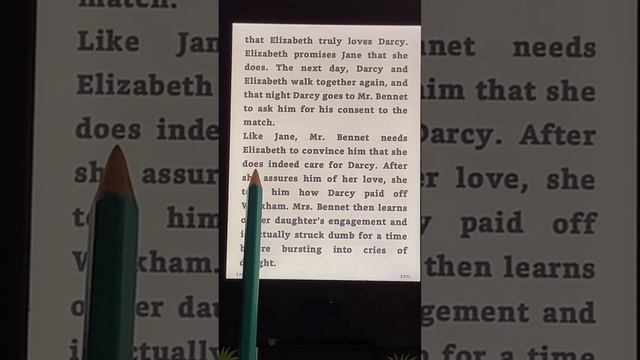 that Elizabeth truly loves Darcy.
Elizabeth promises Jane that she
does. The next day, Darcy and
Elizabeth walk together again, and
that night Darcy goes to Mr. Bennet
to ask him for his consent to the
match.
Like Jane, Mr. Bennet needs
Elizabeth to convince him that she
does indeed care for Darcy. After
she assures him of her love, she
him how Darcy paid off
Wickham. Mrs. Bennet then learns
of her daughter's engagement and
is actually struck dumb for a time
before bursting into cries of
delight.
22%